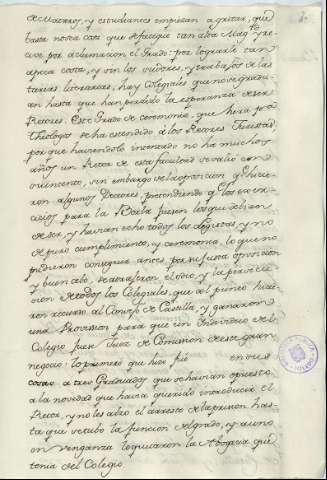 de Maestros, y estudiantes empiezan a gritar, que
basta no sea cosa que se fatigue tan alta Mag.d y re-
cive por aclamacion el Grado: por lograrle tan
apoca costa, y sin los sudores, y trabajos de las
tareas literarias, hay Colegiales que no se gradu-
an hasta que han perdido la esperanza de ser
Rectores. Este Grado de ceremonia, que hera pa
Theologos se ha estendido á los Rectores Juristas,
por que haviendolo intentado no ha muchos
años un Rector de esta facultad se salió con
su intento, sin embargo de la oposicion q.e hicie-
ron algunos Doctores, pretendiendo q.e los exerci-
cios para la Borla fuesen los que deben
de ser, y havian echo todos los Legistas, y no
de puro cumplimiento, y ceremonia, lo que no
pudieron conseguir antes por su justa oposicion
y buen celo, se atrajeron el odio, y la persecu-
cion de todos los Colegiales, que al punto hicie-
ron recurso al Consejo de Castilla, y ganaron
una Provision para que un Individuo de el
Colegio fuese Juez de Comision de este gran
negocio: lo primero que hizo fue en su
casa a tres Graduados que se havian opuesto
a la novedad que havia querido introducir el
Rector, y no les alzó el arresto de la prision has-
ta que se tubo la funcion del grado, y aun
en venganza le quitaron la Abogacia que
tenia del Colegio